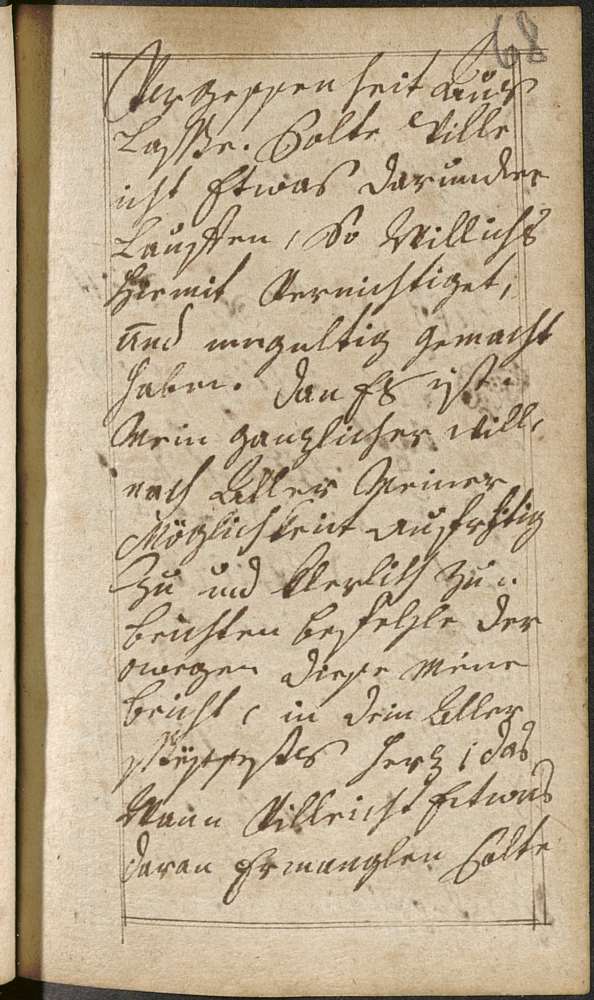 68
Vergessenheit aus
Lasse. Solte Ville
icht Etwas darunder
Lauffen, So Will ichs
Hiemit Vernichtiget,
und ungultig gemacht
haben. dan Es ist
Mein gantzlicher will,
nach Aller Meiner
Möglichkeit aufrichtig
Zu und Zu
beichten befehle der
owegen diese Meine
beicht, in dein Aller
süssestes Hertz, das
Wann Villeicht Etwas
daran Ermanglen Solte